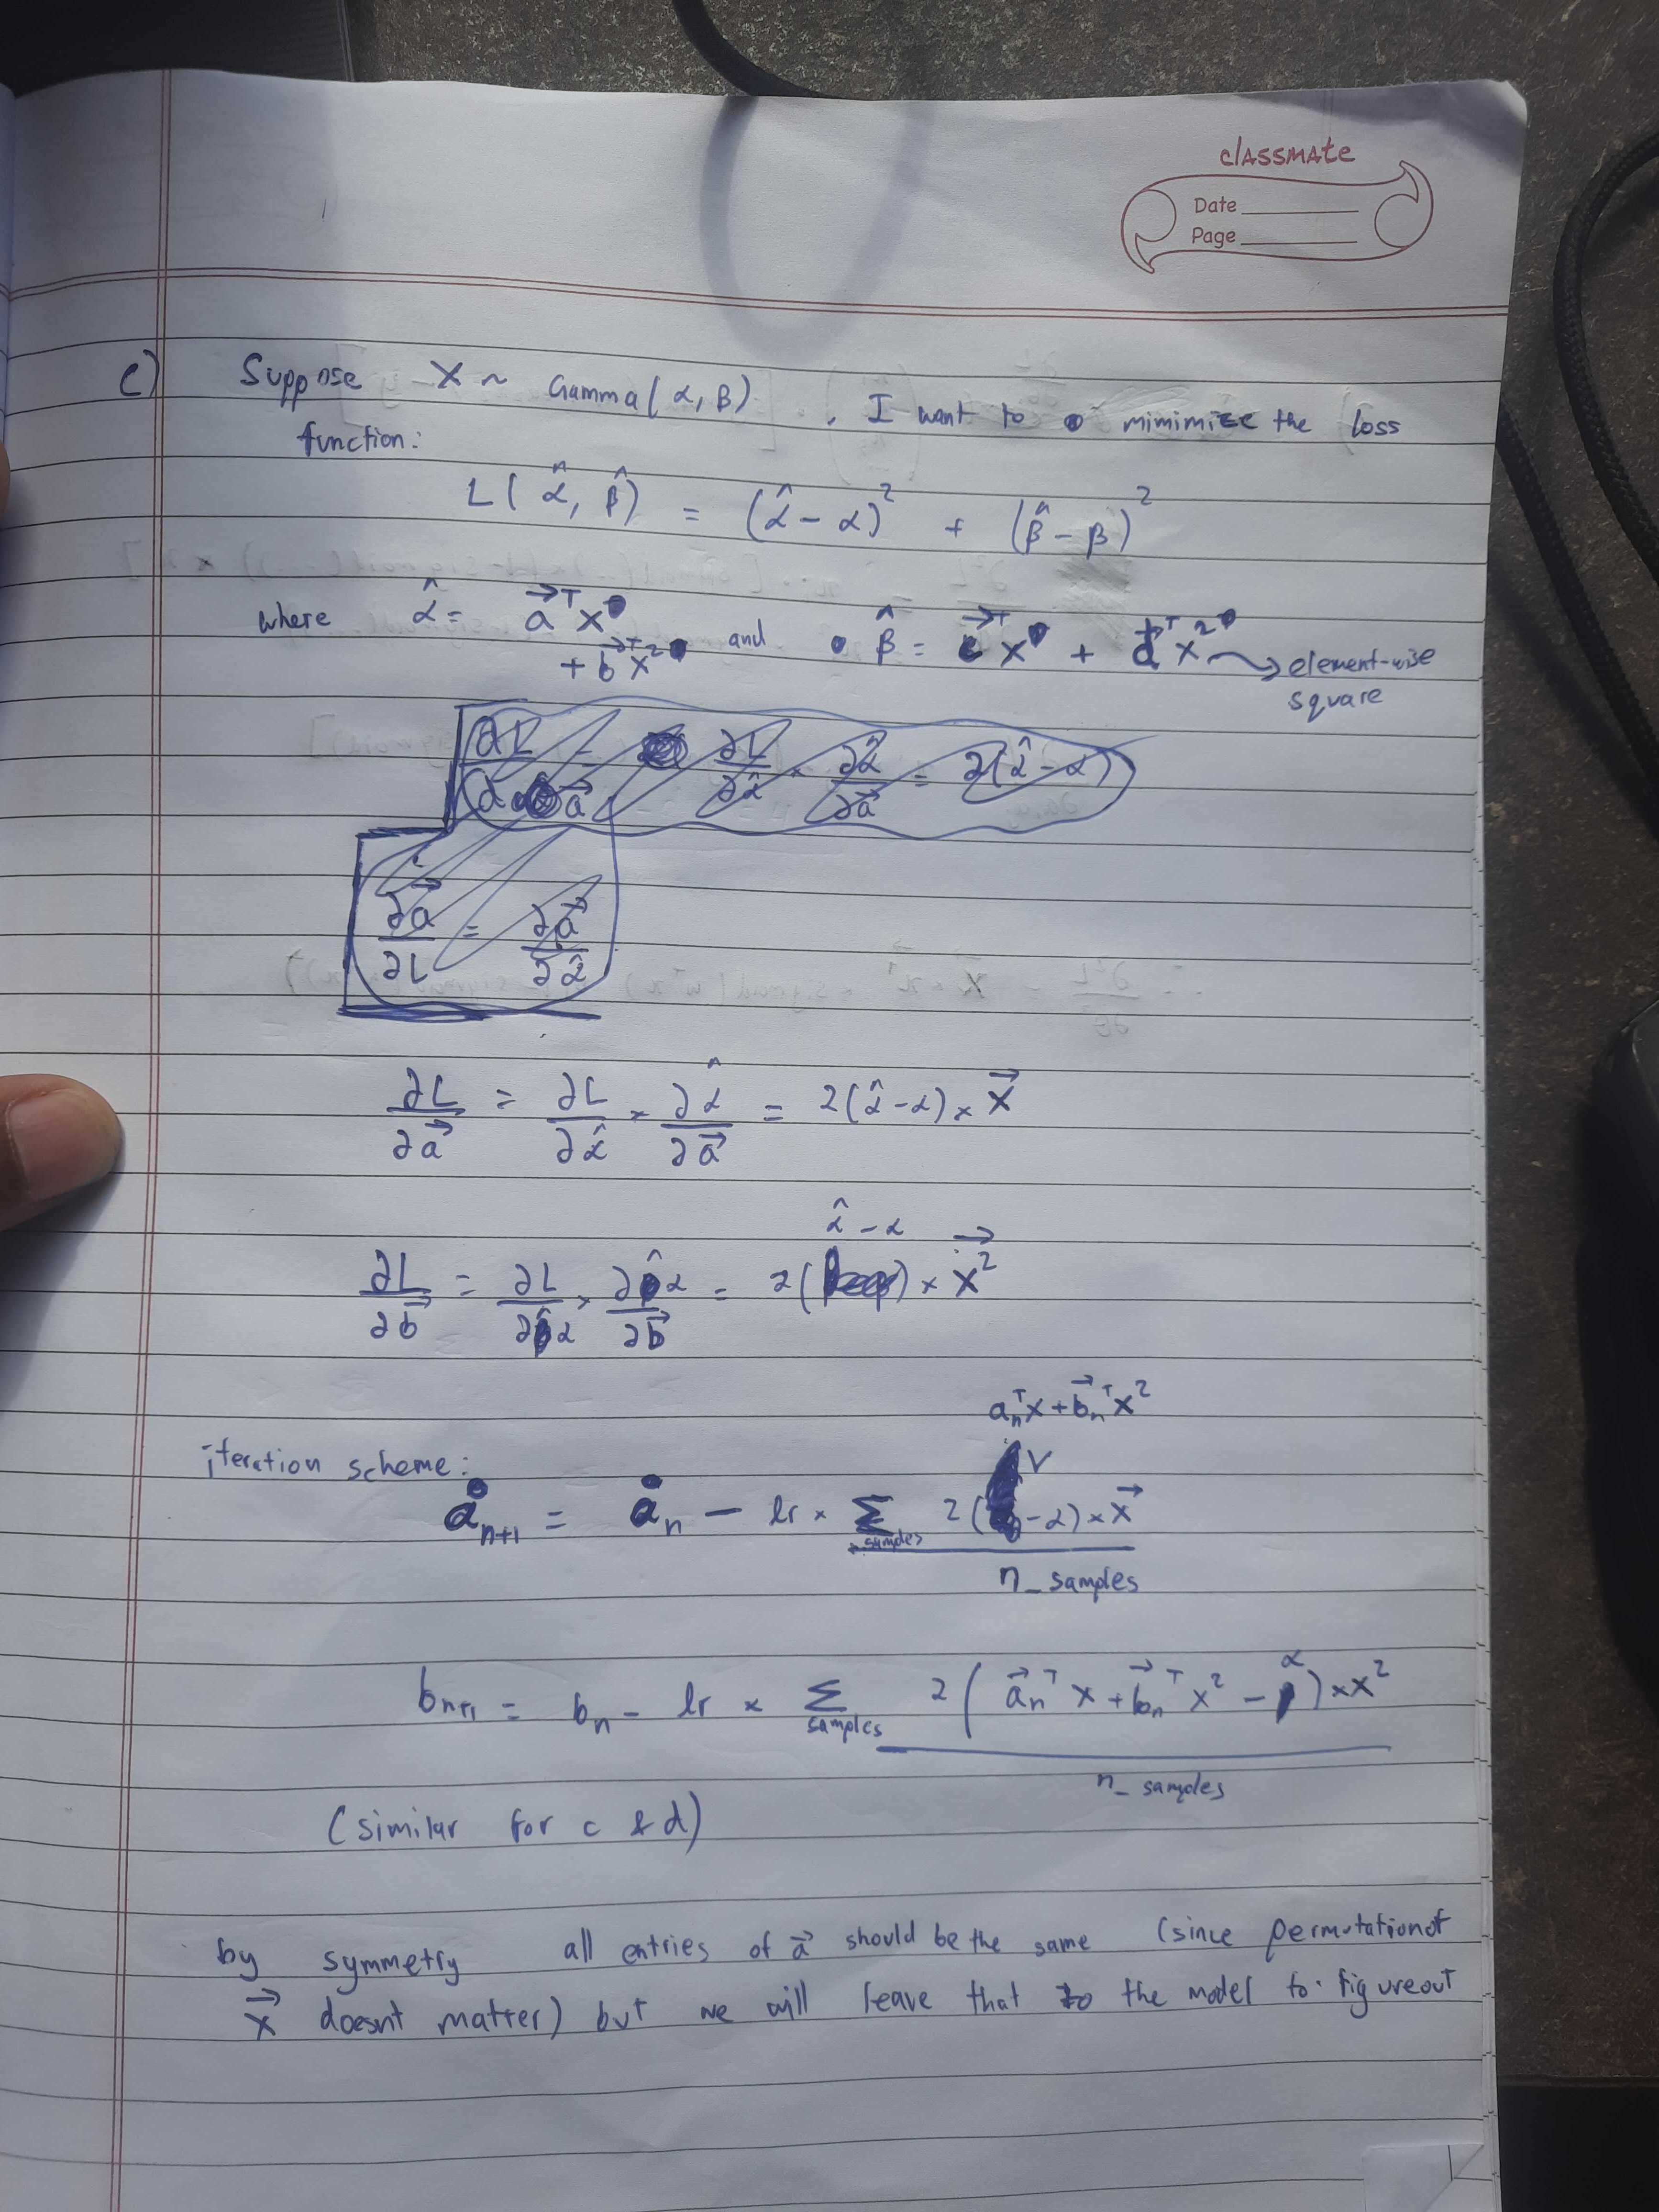 classmate
Date
Page
c) Suppose X ~ Gamma(α, β) . I want to mimimize the loss
function:
L(α̂, β̂) = (α̂ - α)² + (β̂ - β)²
where α̂ = a⃗ᵀx + b⃗ᵀx² and β̂ = c⃗ᵀx + d⃗ᵀx² → element-wise
square
∂L/∂a⃗ = ∂L/∂α̂ × ∂α̂/∂a⃗ = 2(α̂ - α)
∂a⃗/∂L = ∂a⃗/∂α̂
∂L/∂a⃗ = ∂L/∂α̂ × ∂α̂/∂a⃗ = 2(α̂ - α) × x⃗
∂L/∂b⃗ = ∂L/∂α̂ × ∂α̂/∂b⃗ = 2(α̂ - α) × x⃗²
iteration scheme:
aₙ₊₁ = aₙ - lr × Σ_samples 2(aₙᵀx + b⃗ₙᵀx² - α) × x⃗ / n_samples
bₙ₊₁ = bₙ - lr × Σ_samples 2(a⃗ₙᵀx + b⃗ₙᵀx² - α) × x² / n_samples
(similar for c & d)
by symmetry all entries of a⃗ should be the same (since permutation of
x⃗ doesnt matter) but we will leave that to the model to figure out